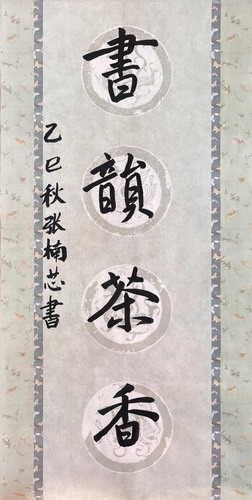 書韻茶香
乙巳秋张楠芯書